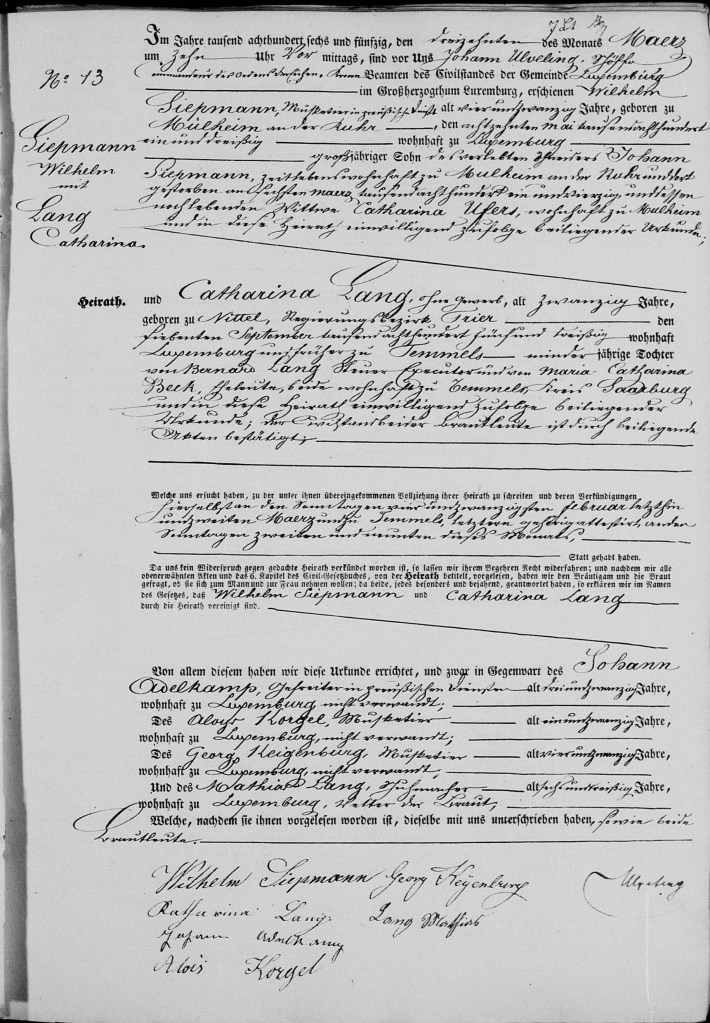 Im Jahre tausend achthundert sechs und fünfzig, den dreizehnten des Monats Maerz
um Zehn Uhr Vor mittags, sind vor Uns Johann Ulveling, Schöffe
Beamten des Civilstandes der Gemeinde Luxemburg
im Großherzogthum Luxemburg, erschienen Wilhelm
No 13
Siepmann
Wilhelm
mit
Lang
Catharina.
Siepmann, Musketier in preußisch dienste alt vier und zwanzig Jahre, geboren zu
Mülheim an der Ruhr, den achtzehnten mai tausend acht hundert
ein und dreißig wohnhaft zu Luxemburg
großjähriger Sohn des verlebten Johann
Siepmann, zeitlebens wohnhaft zu Mülheim an der Ruhr und dort
gestorben am sechsten maerz tausend acht hundert ein und vierzig, und dessen
nochlebenden Wittwe Catharina Ufers, wohnhaft zu Mülheim
und in diese Heirath einwilligend zufolge beiliegender Urkunde;
Heirath.
und Catharina Lang, ohne Gewerb, alt Zwanzig Jahre,
geboren zu Nittel, Regierungsbezirk Trier den
siebenten September tausend acht hundert fünf und dreißig wohnhaft
Luxemburg und früher zu Temmels minder jährige Tochter
von Bernard Lang Steuer Executor und von Maria Catharina
Beck, Eheleute, beide wohnhaft zu Temmels, Kreis Saarburg
und in diese Heirath einwilligend zufolge beiliegender
Urkunde; der beider Brautleute ist durch beiliegende
Akten bestätigt;
Welche uns ersucht haben, zu der unter ihnen übereingekommenen Vollziehung ihrer Heirath zu schreiten und deren Verkündigungen
hierselbst an den Sonntagen vier und zwanzigsten februar letzthin
und zweiten Maerz und zu Temmels, letztere gehörig attestirt, an den
Sonntagen zweiten und neunten dieses Monats.
Statt gehabt haben.
Da uns kein Widerspruch gegen gedachte Heirath verkündet worden ist, so lassen wir ihrem Begehren Recht widerfahren; und nachdem wir alle
obenerwähnten Akten und das 6. Kapitel des Civil-Gesetzbuches, von der Heirath betitelt, vorgelesen, haben wir den Bräutigam und die Braut
gefragt, ob sie sich zum Mann und zur Frau nehmen wollen; da beide, jedes besonders und bejahend, geantwortet haben, so erklären wir im Namen
des Gesetzes, daß Wilhelm Siepmann und Catharina Lang
durch die Heirath vereinigt sind.
Von allem diesem haben wir diese Urkunde errichtet, und zwar in Gegenwart des Johann
Adelkamp, Gefreiter in preußischen Diensten alt drei und zwanzig Jahre,
wohnhaft zu Luxemburg nicht verwandt;
Des Aloys Korgel, Musketier alt ein und zwanzig Jahre,
wohnhaft zu Luxemburg, nicht verwandt;
Des Georg Keigenburg, Musketier alt vier und zwanzig Jahre,
wohnhaft zu Luxemburg, nicht verwandt;
Und des Mathias Lang, Schuhmacher alt sechs und dreißig Jahre,
wohnhaft zu Luxemburg, Vetter der Braut,
Welche, nachdem sie ihnen vorgelesen worden ist, dieselbe mit uns unterschrieben haben, sowie beide
Brautleute.
Wilhelm Siepmann Georg Keyenburg Ulveling
Katharina Lang Lang Mathias
Johann Adelkamp
Alois Korgel